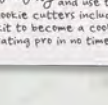 and use t
ookie cutters includ
kit to become a cook
ating pro in no time